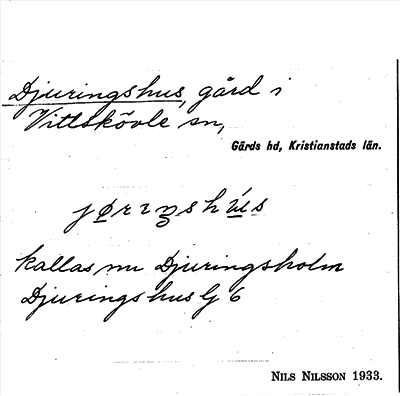 Djuringshus, gård i
Vittskövle sn,
Gärds hd, Kristianstads län.
jørıŋshús
kallas nu Djuringsholm
Djuringshus G 6
NILS NILSSON 1933.